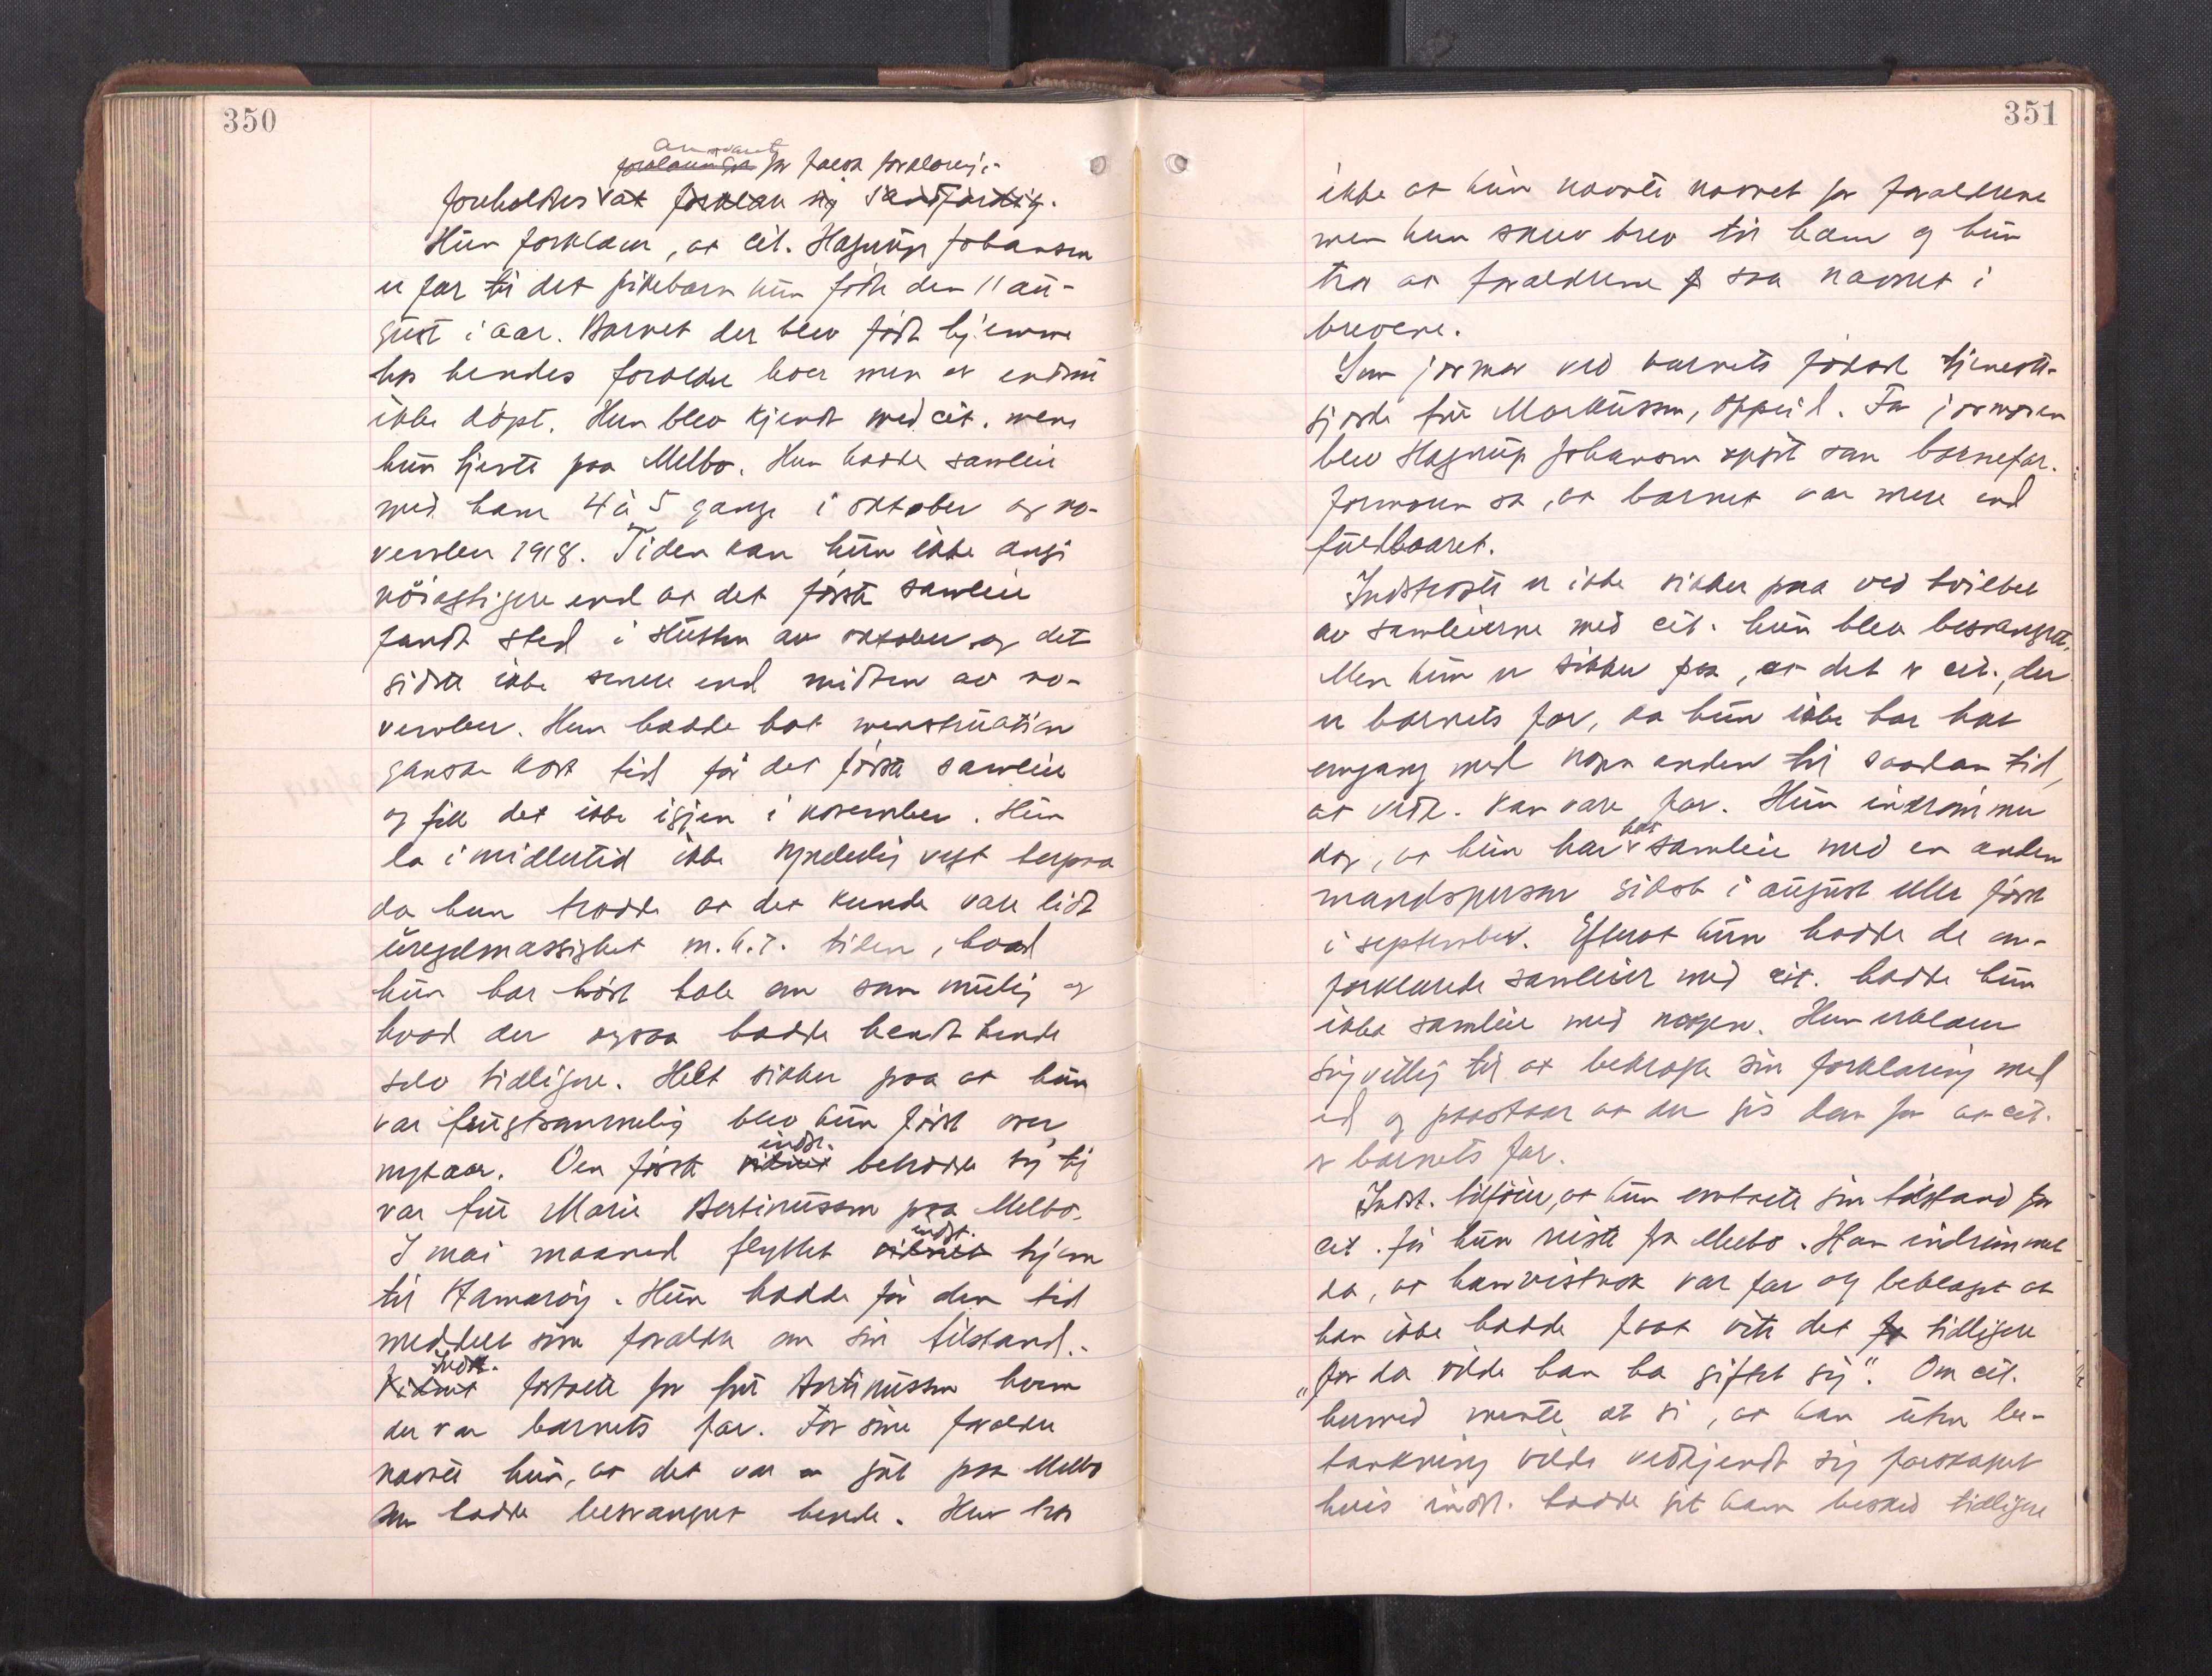 350
ansvaret
forklaringen for falsk forklaring.
foreholdtes at forklare sig sandfærdig.
Hun forklarer, at cit. Hagrup Johansen
er far til det pikebarn hun fødte den 11 au-
gust i aar. Barnet der blev født hjemme
hos hendes forældre lever men er endnu
ikke døpt. Hun blev kjendt med cit. mens
hun tjente paa Melbo. Hun hadde samleie
med ham 4 à 5 gange i oktober og no-
vember 1918. Tiden kan hun ikke angi
nöiagtigere end at det første samleie
fandt sted i slutten av oktober og det
sidste ikke senere end midten av no-
vember. Hun hadde hat menstruation
ganske kort tid før det første samleie
og fik det ikke igjen i november. Hun
la imidlertid ikke synderlig vegt herpaa
da hun trodde at det kunde være lidt
uregelmæssighet m.h.t. tiden, hvad
hun har hørt tale om som mulig og
hvad der ogsaa hadde hendt hende
selv tidligere. Helt sikker paa at hun
var frugtsommelig blev hun først over
nytaar. Den første vidnet indst. betrodde sig til
var fru Marie Bertinussen paa Melbo.
I mai maaned flyttet vidnet indst. hjem
til Hamarøy. Hun hadde før den tid
meddelt sine forældre om sin tilstand.
Vidnet Indst. fortalte for fru Bertinussen hvem
der var barnets far. For sine forældre
nævnte hun, at det var en gut paa Melbo
som hadde besvangret hende. Hun tror
351
ikke at hun nævnte navnet for forældrene
men hun skrev brev til ham og hun
tror at forældrene saa navnet i
brevene.
Som jormor ved barnets fødsel tjeneste-
gjorde fru Markussen, Oppeid. For jormoren
blev Hagrup Johansen opgit som barnefar.
Jormoren sa, at barnet var mere end
fuldbaaret.
Indstevnte er ikke sikker paa ved hvilket
av samleierne med cit. hun blev besvangret.
Men hun er sikker paa, at det er cit., der
er barnets far, da hun ikke har hat
omgang med nogen anden til saadan tid,
at vedk. kan være far. Hun indrømmer
dog, at hun har hat samleie med en anden
mandsperson sidst i august eller først
i september. Efterat hun hadde de om-
forklarede samleier med cit. hadde hun
ikke samleie med nogen. Hun erklærer
sig villig til at bekræfte sin forklaring med
ed og paastaar at der gis dom for at cit.
er barnets far.
Indst. tilføier, at hun omtalte sin tilstand for
cit. før hun reiste fra Melbo. Han indrømmet
da, at han vistnok var far og beklaget at
han ikke hadde faat vite det før tidligere
"for da vilde han ha giftet sig". Om cit.
hermed mente at si, at han uten be-
tænkning vilde vedkjendt sig farskapet
hvis indst. hadde git ham besked tidligere